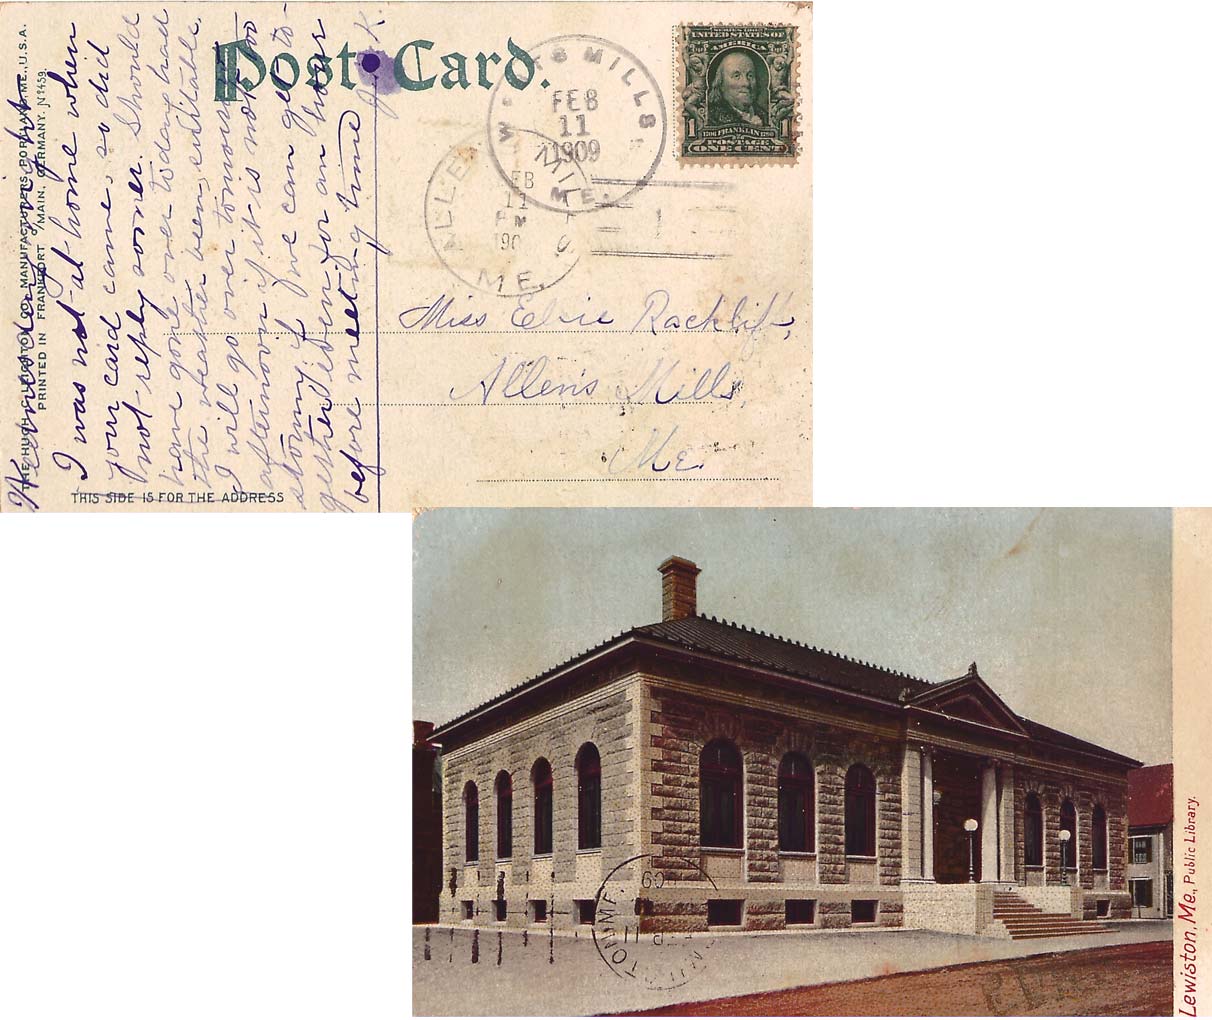 Post Card.
SERIES 1902
UNITED STATES OF
AMERICA
1706 FRANKLIN 1790
1 POSTAGE 1
ONE CENT
MILLS
FEB
11
1909
ME.
ALLE
MIL
EB
11
PM
190
ME.
1
Miss Elsie Rackliff,
Allen's Mills,
Me.
THE HUGH C. LEIGHTON CO., MANUFACTURERS, PORTLAND, ME., U.S.A.
PRINTED IN FRANKFORT O/MAIN, GERMANY. No 1459.
THIS SIDE IS FOR THE ADDRESS
Wednesday night
I was not at home when
your card came, so did
not reply sooner. Should
have gone over to day had
the weather been suitable.
I will go over tomorrow
afternoon if it is not too
stormy if we can get to-
gether even for an hour
before meeting time
K.
Lewiston, Me., Public Library.
09
11